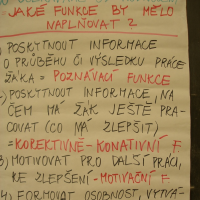 JAKÉ FUNKCE BY MĚLO
NAPLŇOVAT ?
) POSKYTNOUT INFORMACE
O PRŮBĚHU ČI VÝSLEDKU PRÁCE
ŽÁKA = POZNÁVACÍ FUNKCE
2) POSKYTNOUT INFORMACE, NA
ČEM MÁ ŽÁK JEŠTĚ PRA-
COVAT (CO MÁ ZLEPŠIT)
= KOREKTIVNĚ-KONATIVNÍ F.
3) MOTIVOVAT PRO DALŠÍ PRÁCI,
KE ZLEPŠENÍ - MOTIVAČNÍ F.
4) FORMOVAT OSOBNOST, VYTVÁ-